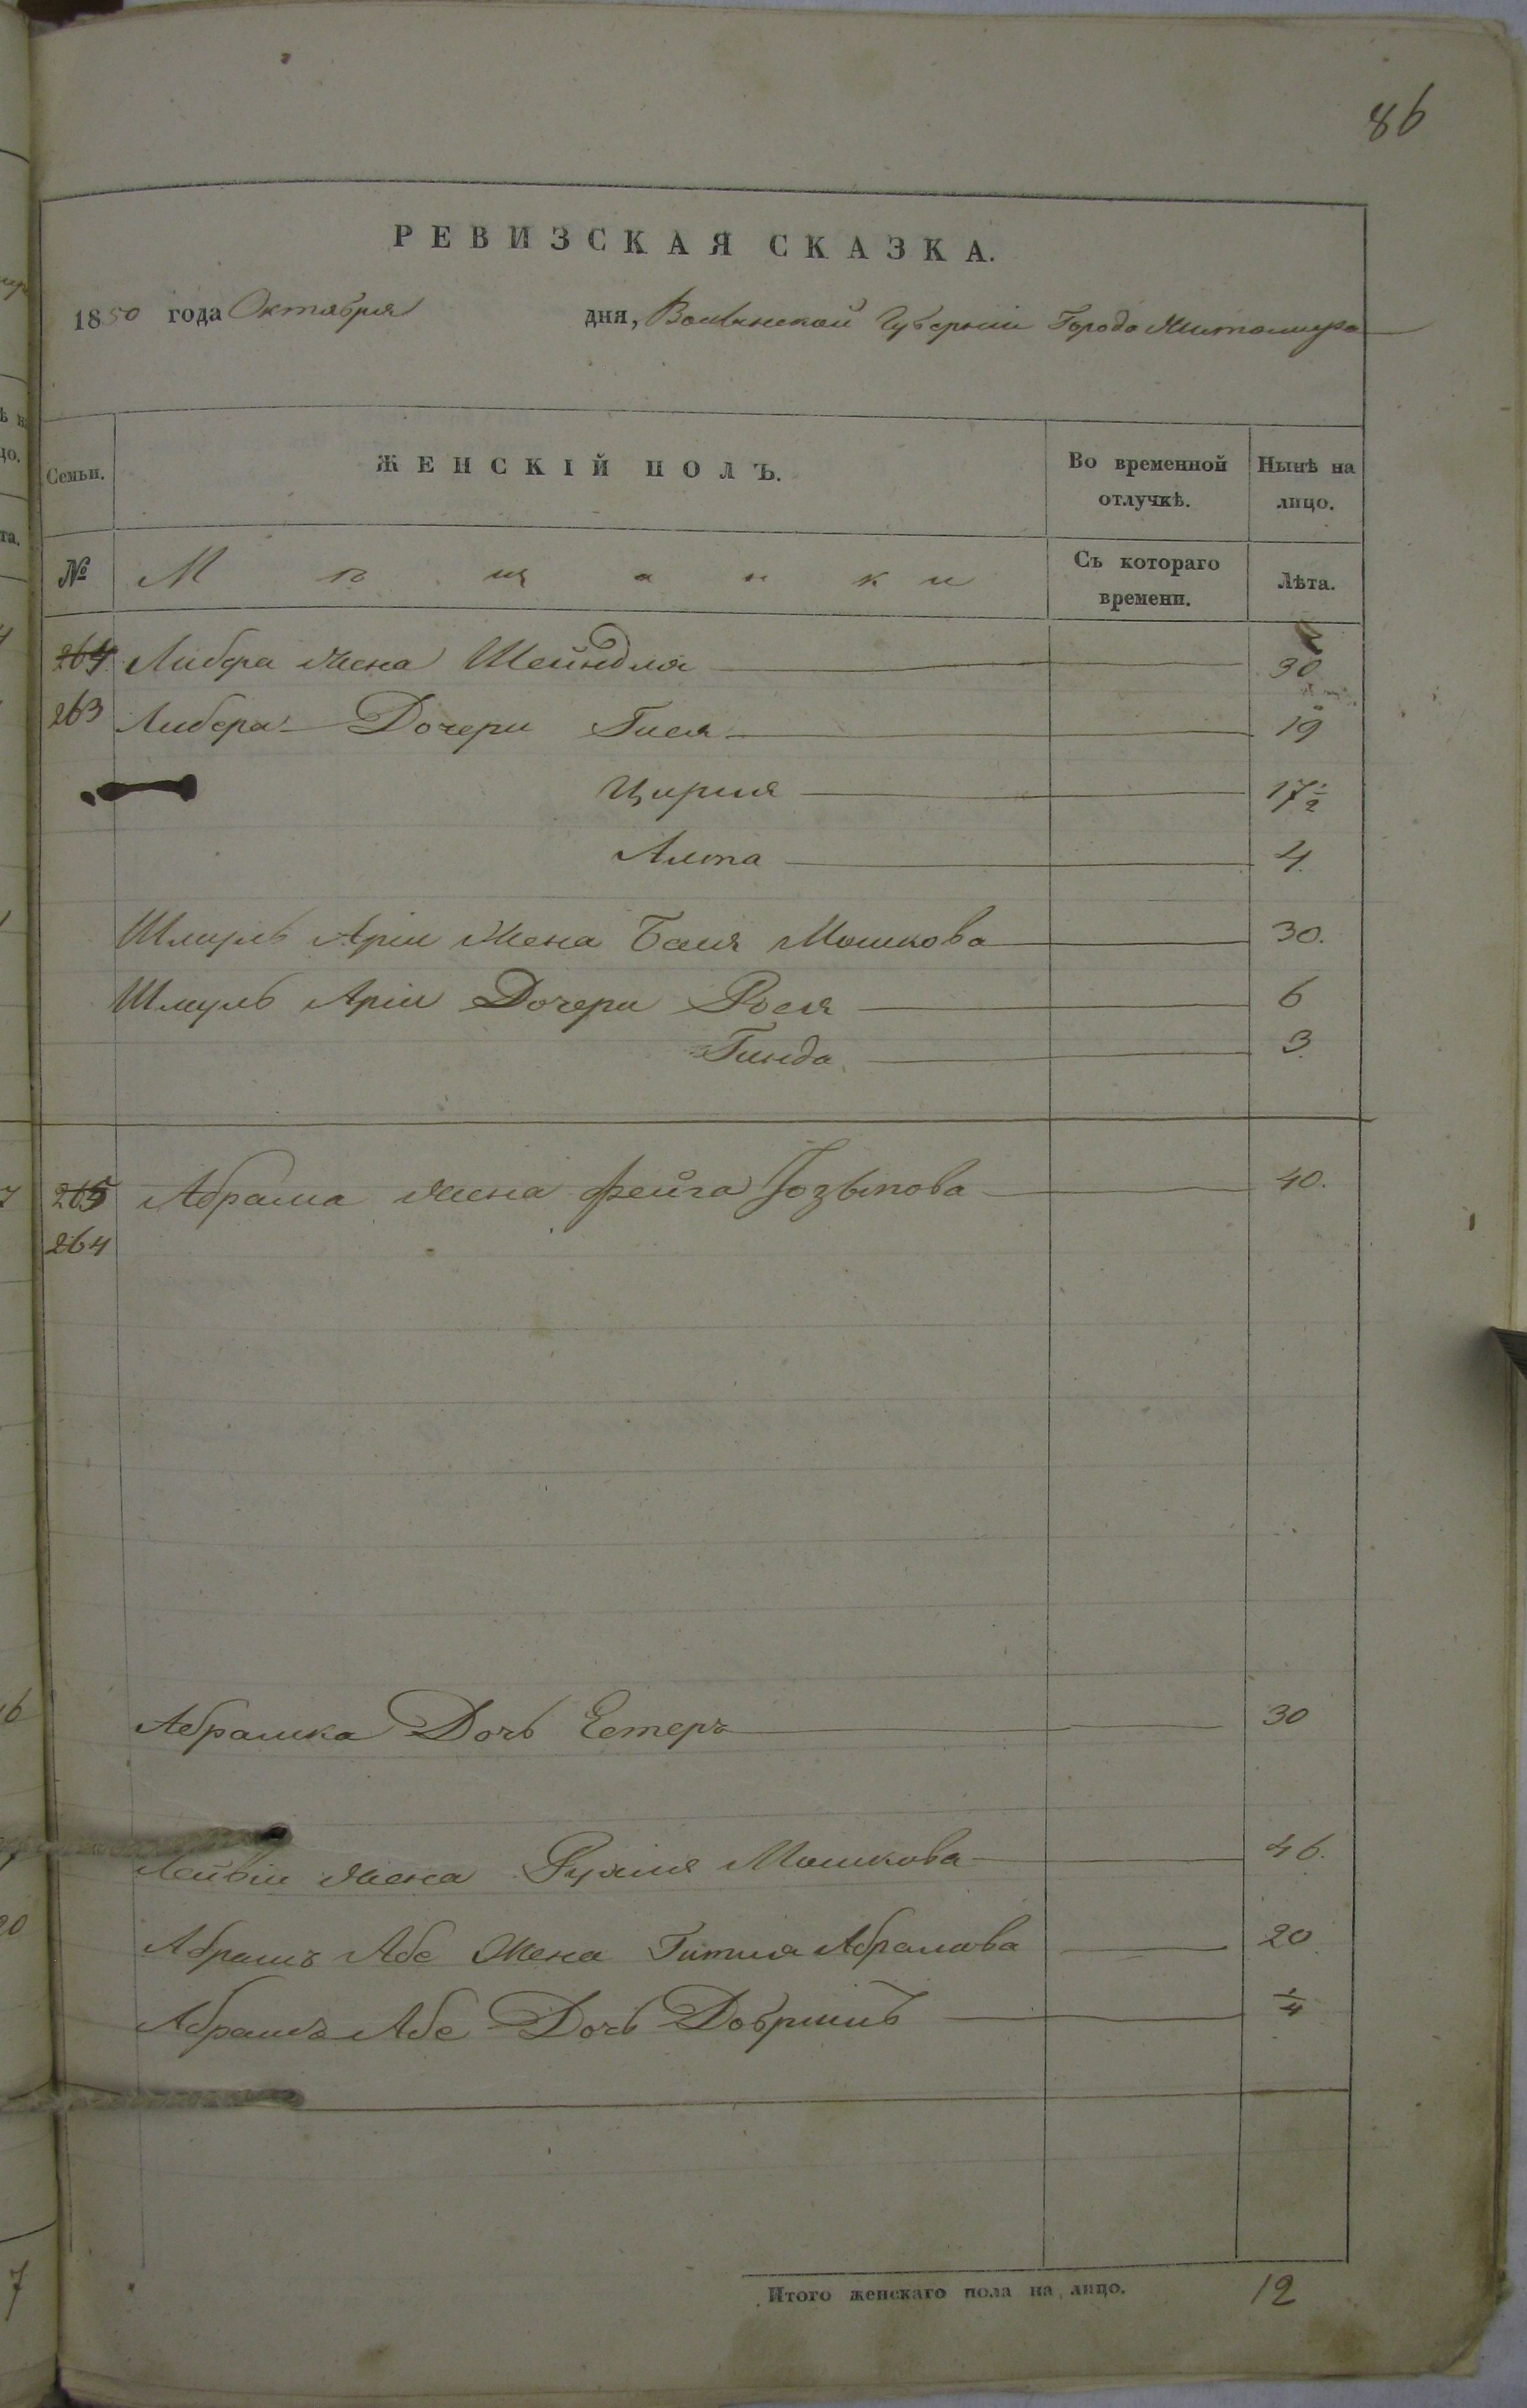 86
РЕВИЗСКАЯ СКАЗКА.
1850 года Октября дня, Волынской Губерніи Города Житомира
Семьи. ЖЕНСКІЙ ПОЛЪ. Во временной отлучкѣ. Нынѣ на лицо.
№ Мѣщанки Съ котораго времени. Лѣта.
264 Либера жена Шейндля 30
263 Либера Дочери Гися 19
Цирля 17 1/2
Алта 4.
Шмуль Аріи Жена Бася Мошкова 30.
Шмуль Аріи Дочери Рося 6
Гинда 3.
265 Абрама жена Фейга Іозыпова 40.
264
Абрамка Дочь Естеръ 30
Лейбы жена Рухля Мошкова 46.
Абрамъ Абе Жена Гитля Абрамова 20
Абрамъ Абе Дочь Добришъ 1/4
Итого женскаго пола на лицо. 12